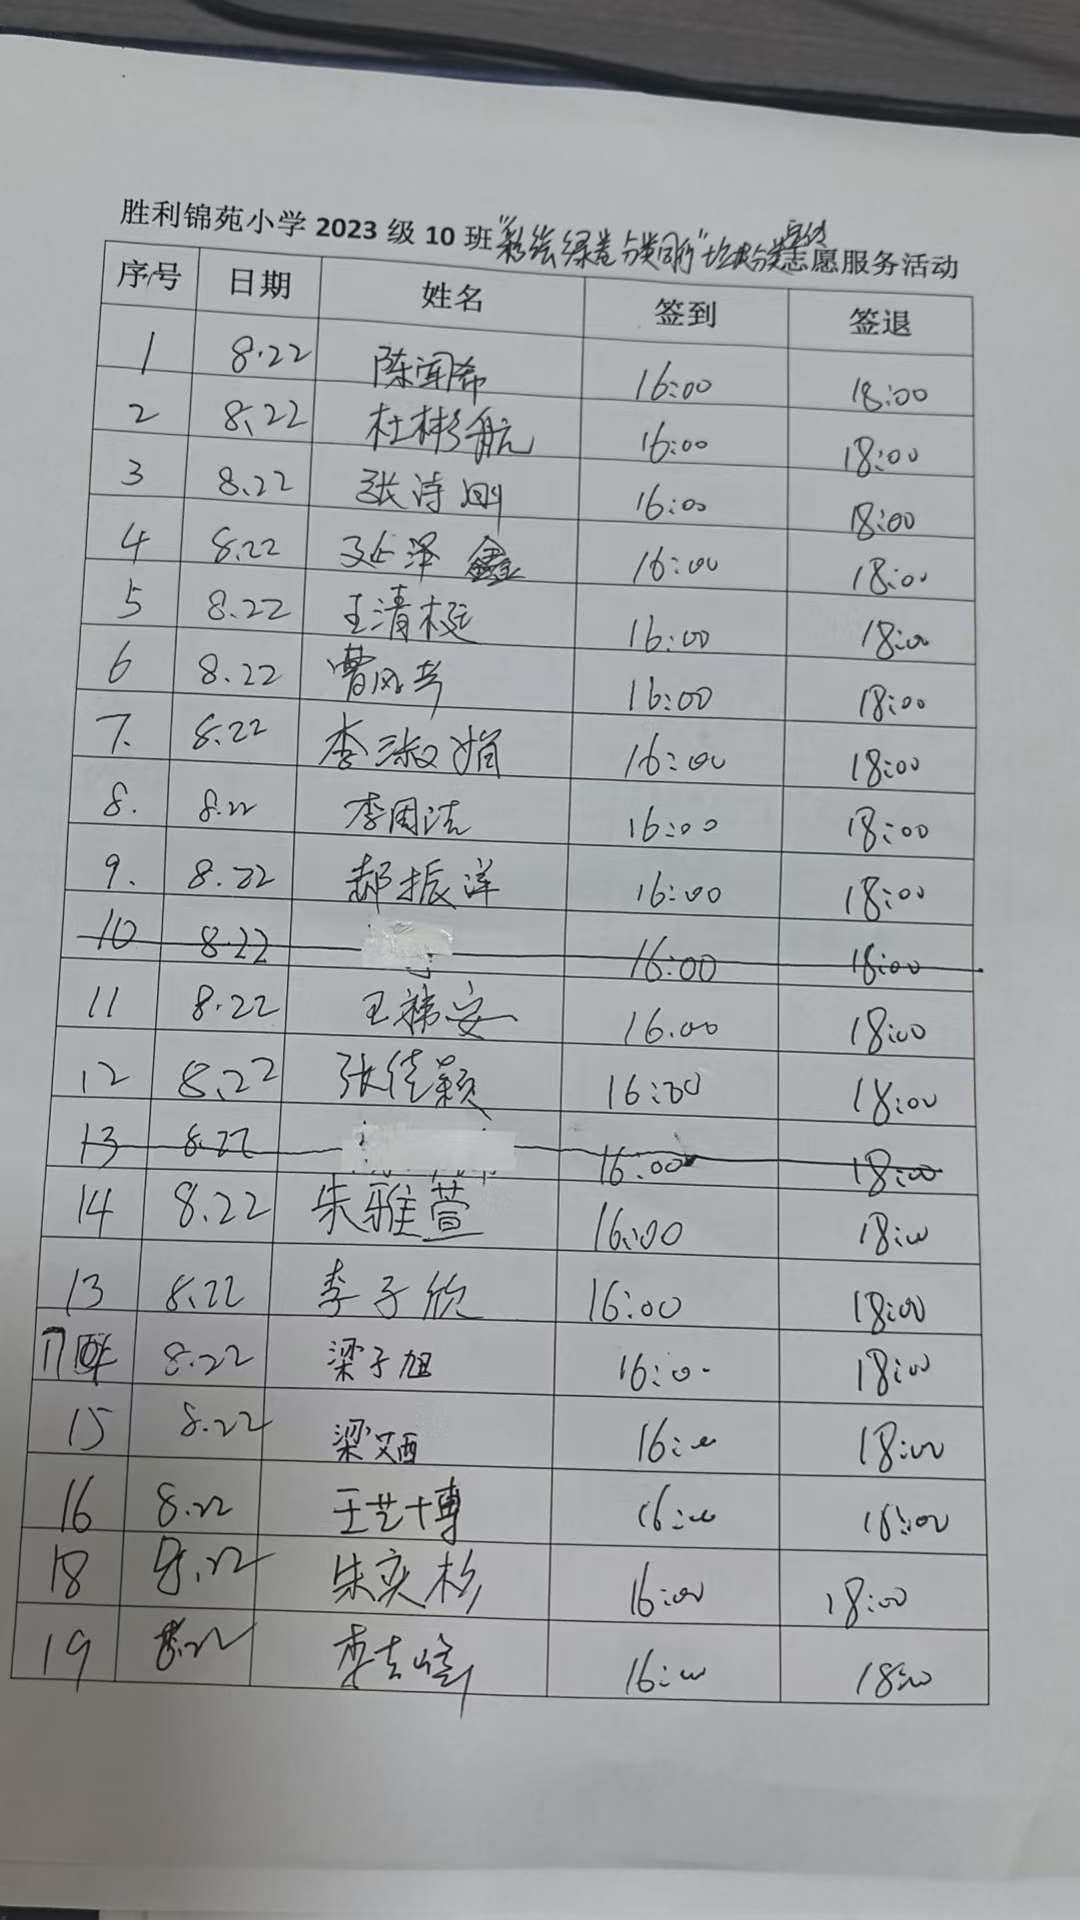 胜利锦苑小学 2023 级 10 班"彩绘绿卷 分类同行"垃圾分类宣传志愿服务活动
序号 日期 姓名 签到 签退
1 8.22 陈闻希 16:00 18:00
2 8.22 杜彬航 16:00 18:00
3 8.22 张诗 16:00 18:00
4 8.22 泽鑫 16:00 18:00
5 8.22 王清 16:00 18:00
6 8.22 曹风 16:00 18:00
7. 8.22 李淑娟 16:00 18:00
8. 8.22 李国洁 16:00 18:00
9. 8.22 郝振洋 16:00 18:00
10 8.22 16:00 18:00
11 8.22 王祎安 16.00 18:00
12 8.22 张佳颖 16:00 18:00
13 8.22 16:00 18:00
14 8.22 朱雅萱 16:00 18:00
13 8.22 李子欣 16:00 18:00
17 8.22 梁子旭 16:00 18:00
15 8.22 梁艾西 16:00 18:00
16 8.22 王艺博 16:00 18:00
18 8.22 朱奕杉 16:00 18:00
19 8.22 李志峰 16:00 18:00